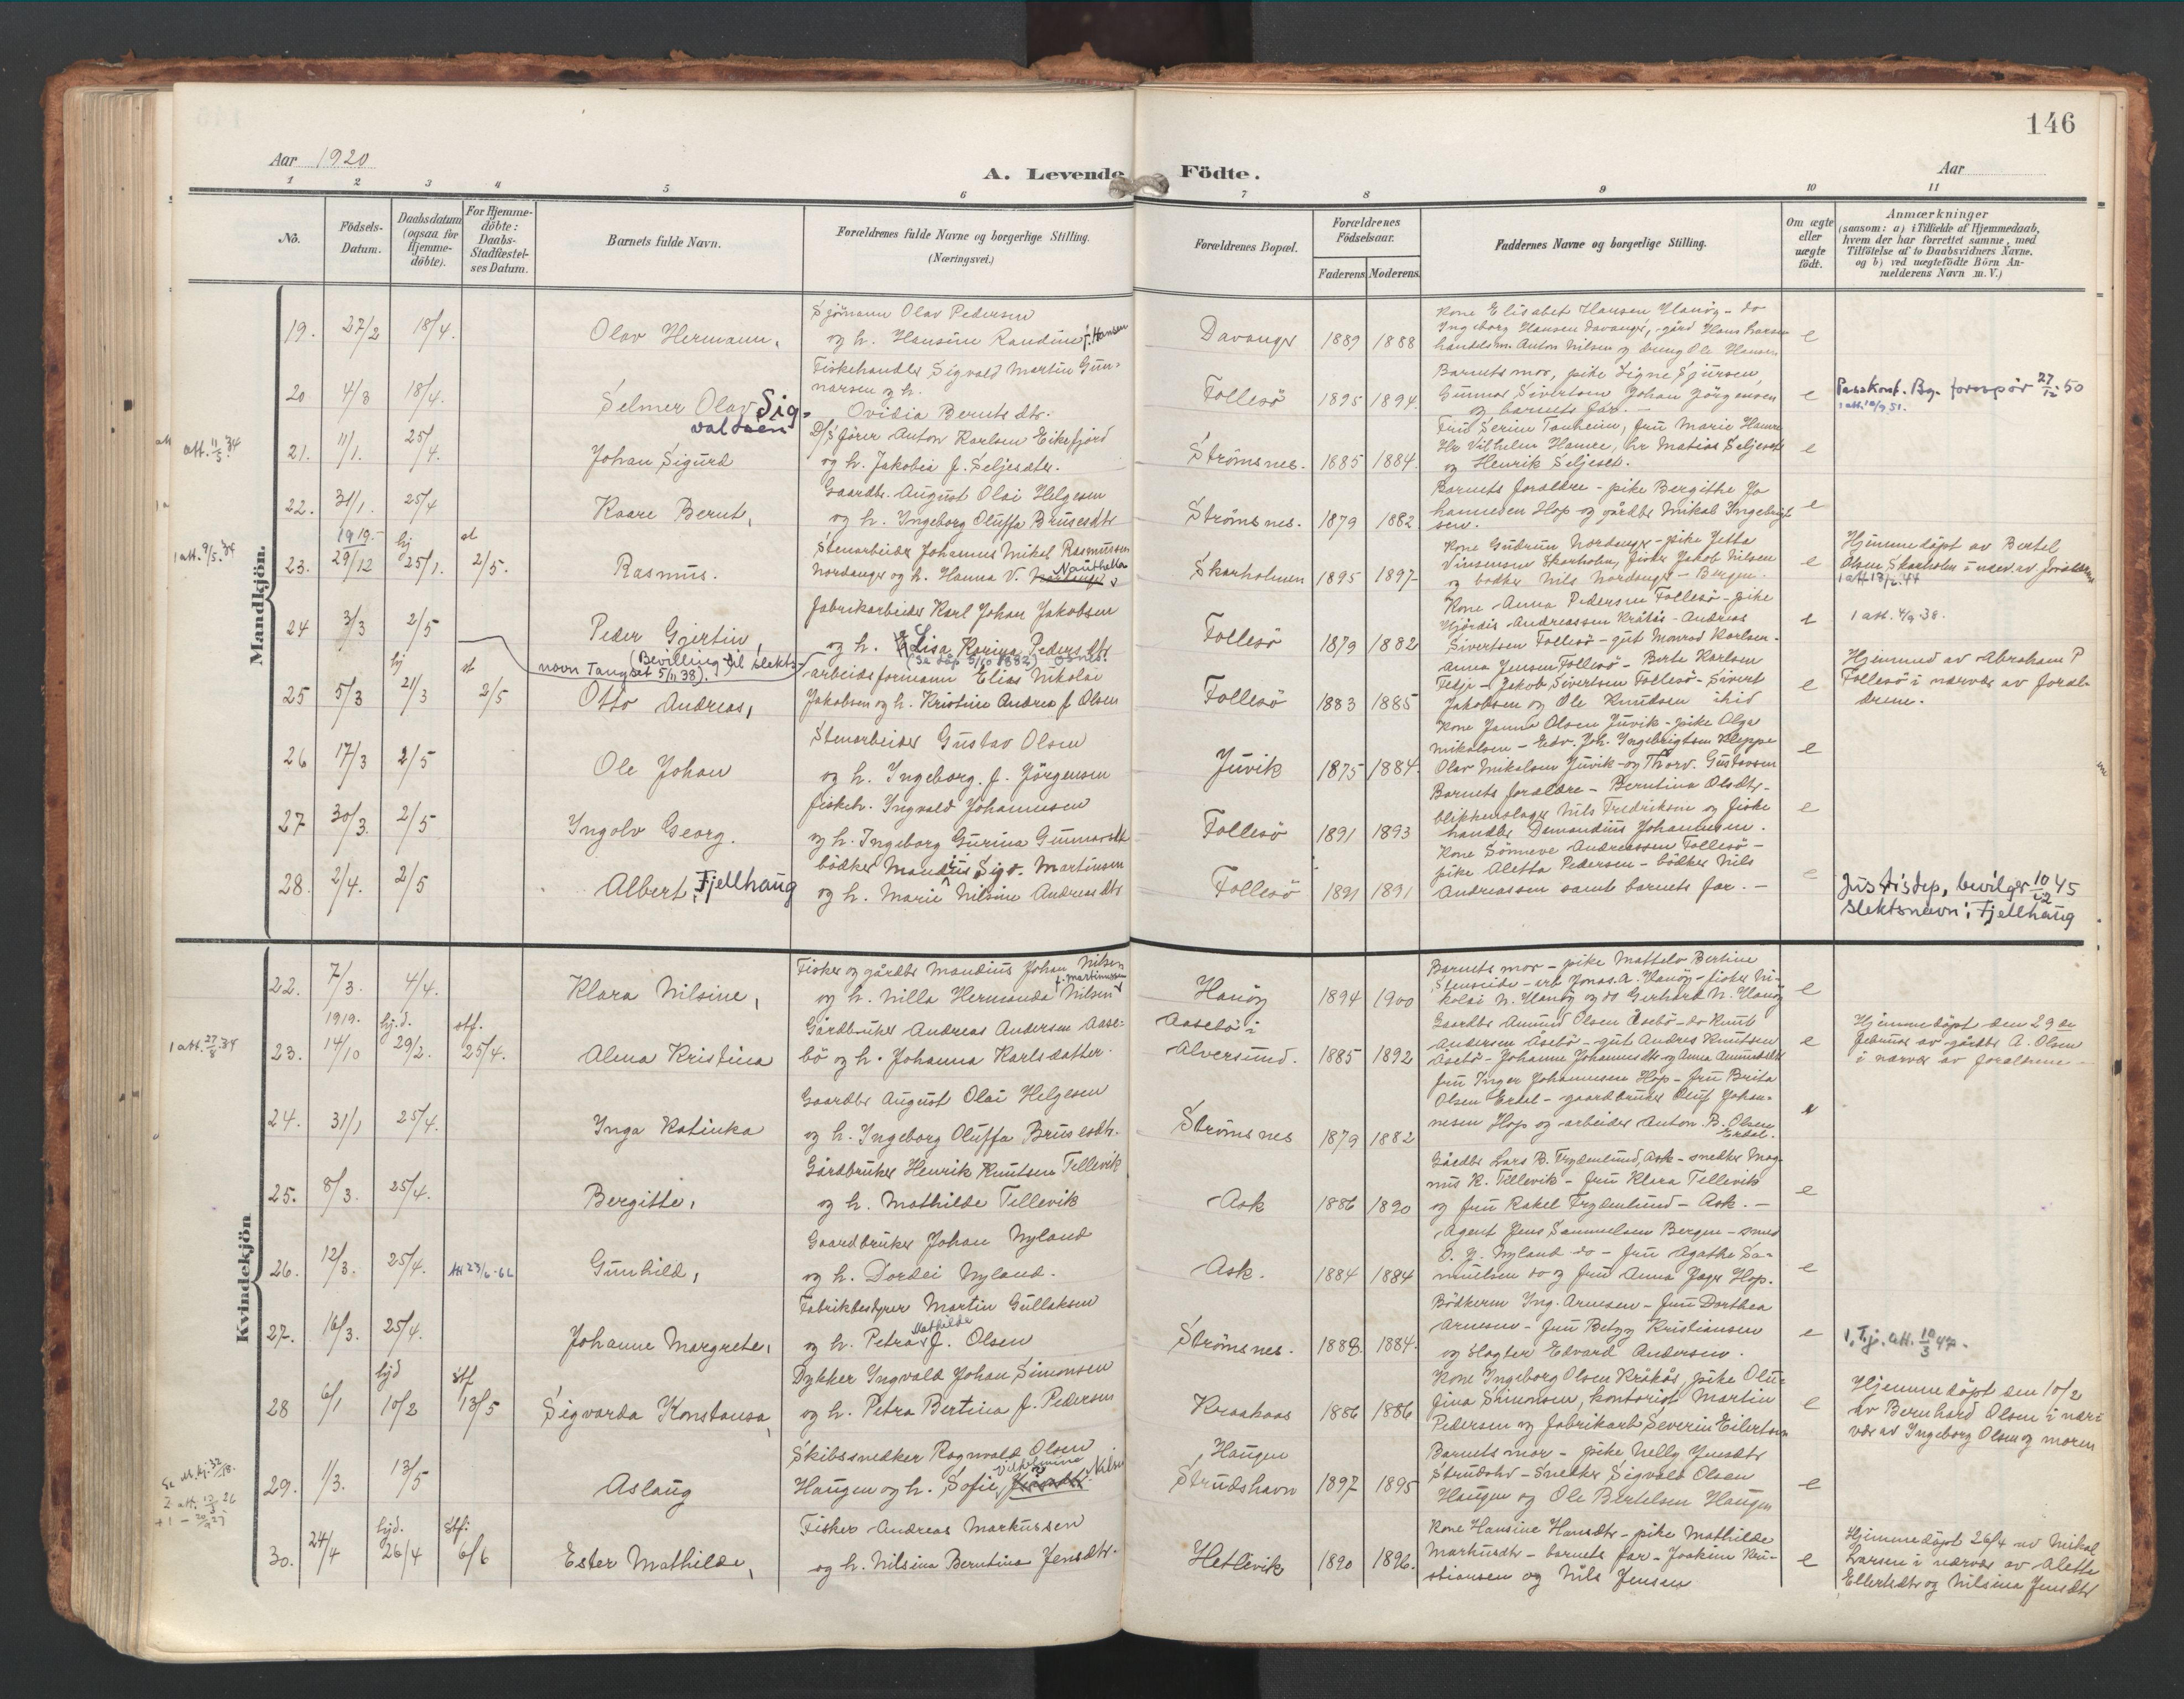 146
Aar 1920
A. Levende Födte.
Aar
1 2 3 4 5 6 7 8 9 10 11
No.
Födsels-
Datum.
Daabsdatum
(ogsaa for
Hjemme-
döbte).
For Hjemme-
döbte:
Daabs-
Stadfæstel-
ses Datum.
Barnets fulde Navn.
Forældrenes fulde Navne og borgerlige Stilling.
(Næringsvei.)
Forældrenes Bopæl.
Forældrenes
Födselsaar.
Faderens Moderens
Faddernes Navne og borgerlige Stilling.
Om ægte
eller
uægte
födt.
Anmærkninger
(saasom: a) i Tilfælde af Hjemmedaab,
hvem der har forrettet samme, med
Tilföielse af to Daabsvidners Navne,
og b) ved uægtefödte Börn An-
melderens Navn m. V.)
Mandkjön.
19. 27/2 18/4. Olav Hermann,
Sjömann Olav Pedersen
og h. Hansine Randine f. Hansen
Davanger 1889 1888
Kone Elisabet Hansen Hanöy - do
Ingeborg Hansen Davanger, gård Hans Larsen
handelsm. Anton Nilsen og dreng Ole Hansen
e
20 4/3 18/4. Selmer Olav Sig-
valdsen
Fiskehandler Sigvald Martin Gun-
narsen og h.
Ovidia Bernts dtr.
Follesö 1895 1894.
Barnets mor, pike Signe Sjursen,
Gunnar Sivertsen, Johan Jörgensen
og barnets far. -
e
Passkont. Bg. forespör 27/12 50
1 att. 10/9 51.
att. 11/5 34
21. 11/1. 25/4. Johan Sigurd
D/S förer Anton Karlsen Eikefjord
og h. Jakobia f. Seljesdtr.
Strömsnes. 1885 1884.
Frü Serine Tanheim, frü Marie Hamre
Hr Vilhelm Hamre, hr Matias Seljeset
og Henrik Seljeset.
e
22. 31/1. 25/4 Kaare Bernt,
Gaardbr. August Olai Helgesen
og h. Ingeborg Oluffa Brusesdtr
Strömsnes. 1879 1882
Barnets foreldre - pike Bergithe Jo
hannesen Hop og gårdbr Mikal Ingebrigt
sen.
e
1 att. 9/5. 34
23. 1919. 29/12 hj 25/1. st 2/5. Rasmus.
Stenarbeider Johannes Mikal Rasmussen
Nordanger og h. Hanna V. Nordanger
Skarholmen 1895 1897
Kone Gudrun Nordanger - pike Jetta
Vinsensen Skarholm, fisker Jakob Nilsen
og bödker Nils Nordanger - Bergen.
e
Hjemmedöpt av Bertel
Olsen Skarholm i nærv. av foreldrene
1 att 13/2. 44
24 3/3 2/5 Peder Gjertin,
(Bevilling til slekts-
navn Tangset 5/11 38).
Fabrikarbeider Karl Johan Jakobsen
og h. Lisa Karina Peders dtr
(se döp 5/10 1882)
Follesö 1879 1882
Kone Anna Pedersen Follesö - pike
Hjördis Andreassen Kråkås - Andreas
Sivertsen Follesö - gut Monrad Karlsen.
e
1 att. 4/9 38.
25 5/3 hj 21/3 st 2/5 Otto Andreas,
arbeidsformann Elias Nikolai
Jakobsen og h. Kristine Andrea f. Olsen
Follesö 1883 1885
Anna Jensen Follesö - Berte Karlsen
Fedje - Jakob Sivertsen Follesö - Sivert
Jakobsen og Ole Knudsen ibid
e
Hjemmed av Abraham P
Follesö i nærvær av foreld-
rene.
26 17/3 2/5 Ole Johan
Stenarbeider Gustav Olsen
og h. Ingeborg. f. Jörgensen
Juvik 1875 1884.
Kone Janna Olsen Juvik - pike Olga
Mikalsen - Edv. Joh. Ingebrigtsen Kleppe
Olav Mikalsen Juvik og Thorv. Gustavsen
e
27 30/3. 2/5 Ingolv Georg.
fiskeh. Ingvald Johannesen
og h. Ingeborg Gurina Gunnarsdtr
Follesö 1891 1893
Barnets foreldre - Berntina Olsdtr -
blikkenslager Nils Fredriksen og fiske
handler Demandius Johannesen.
e
28. 2/4. 2/5 Albert, Fjellhaug
bödker Mandius Sigv. Martinsen
og h. Marie Nilsine Andreasdtr
Follesö 1891 1891
Kone Sönneve Andreassen Follesö -
pike Aletta Pedersen - bödker Nils
Andreassen samt barnets far. -
e
Justisdep, bevilger 10/12 45
slektsnavn: Fjellhaug
Kvindekjön
22. 7/3. 4/4. Klara Nilsine,
Fisker og gårdbr Mandius Johan Nilsen
og h. Nilla Hermanda Nilsen f. Martinussen
Hanöy 1894 1900
Barnets mor - pike Mattela Bertine
Stenseide - arb Jonas A. Hanöy - fisker Ni-
kolai N. Hanöy og do Gerhard N. Hanöy
e
1 att. 27/8. 34
23. 1919. 14/10 hj.d. 29/2. stf. 25/4. Alma Kristina
Gårdbruker Andreas Andersen Aase-
bö og h. Johanna Karlsdatter.
Aasebö i
Alversund. 1885 1892
Gaardbr Amund Olsen Åsebö - do Knut
Andersen Åsebö - gut Anders Knutsen
Åsebö - Johanne Johannesdtr og Anna Amundsdtr
e
Hjemmedöpt den 29de
februar av gårdbr A. Olsen
i nærvær av foreldrene -
24. 31/1 25/4. Inga Katinka
Gaardbr August Olai Helgesen
og h. Ingeborg Oluffa Brusesdtr.
Strömsnes 1879 1882
Frü Inger Johannesen Hop - Frü Brita
Olsen Erdal - gaardbruker Oluf Johan-
nesen Hop og arbeider Anton B. Olsen
Erdal.
e
25. 8/3. 25/4. Bergitte,
Gårdbruker Henrik Knutsen Tellevik
og h. Mathilde Tellevik
Ask 1886 1890
Gårdbr Lars B. Frydenlund, Ask - snedker Mag-
nus K. Tellevik - frü Klara Tellevik
og frü Rakel Frydenlund - Ask. -
e
26. 12/3. 25/4. Att 23/6-62 Gunhild,
Gaardbruker Johan Nyland
og h. Dordei Nyland.
Ask. 1884 1884
Agent Jens Samuelsen Bergen - smed
O. J. Nyland do - frü Agathe Sa-
muelsen do og frü Anna Hop.
e
27. 16/3. 25/4. Johanne Margrete,
Fabrikbestyrer Martin Gullaksen
og h. Petra Mathilde f. Olsen
Strömsnes. 1888. 1884.
Bödkerm Ing. Arnesen - Frü Dorthea
Arnesen - Frü Betzy Kristiansen
og slagter Edvard Andersen.
e
1. Tj. att. 10/3 47.
28 6/1 hjd 10/2 stf 13/5 Sigvarda Konstansa,
Dykker Ingvald Johan Simonsen
og h. Petra Bertina f. Pedersen
Kraakaas 1886 1886
Kone Ingeborg Olsen Kråkås, pike Olu-
fina Simonsen, kontorist Martin
Pedersen og fabrikarb Severin Eilertsen
e
Hjemmedöpt den 10/2
av Bernhard Olsen i nær-
vær av Ingeborg Olsen og moren
2 att. 10/3 26
29. 1/3. 13/5 Aslaug
Skibssnedker Rognvald Olsen
Haugen og h. Sofie Vilhelmina Nilsen
Haugen
Strudshavn 1897 1895
Barnets mor - pike Nelly Jensdtr
Strudshv - Snedker Sigvald Olsen
Haugen og Ole Bertelsen Haugen
e
30. 24/4 hjd. 26/4 stf. 6/6 Ester Mathilde,
Fisker Andreas Markussen
og h. Nilsina Berntina Jensdtr.
Hetlevik 1890 1896.
Kone Hansine Hansdtr - pike Mathilde
Markusdtr - barnets far - Joakim Kri-
stiansen og Nils Jensen
e
Hjemmedöpt 26/4 av Mikal
Larsen i nærvær av Aletta
Ellertsdtr og Nilsina Jensdtr